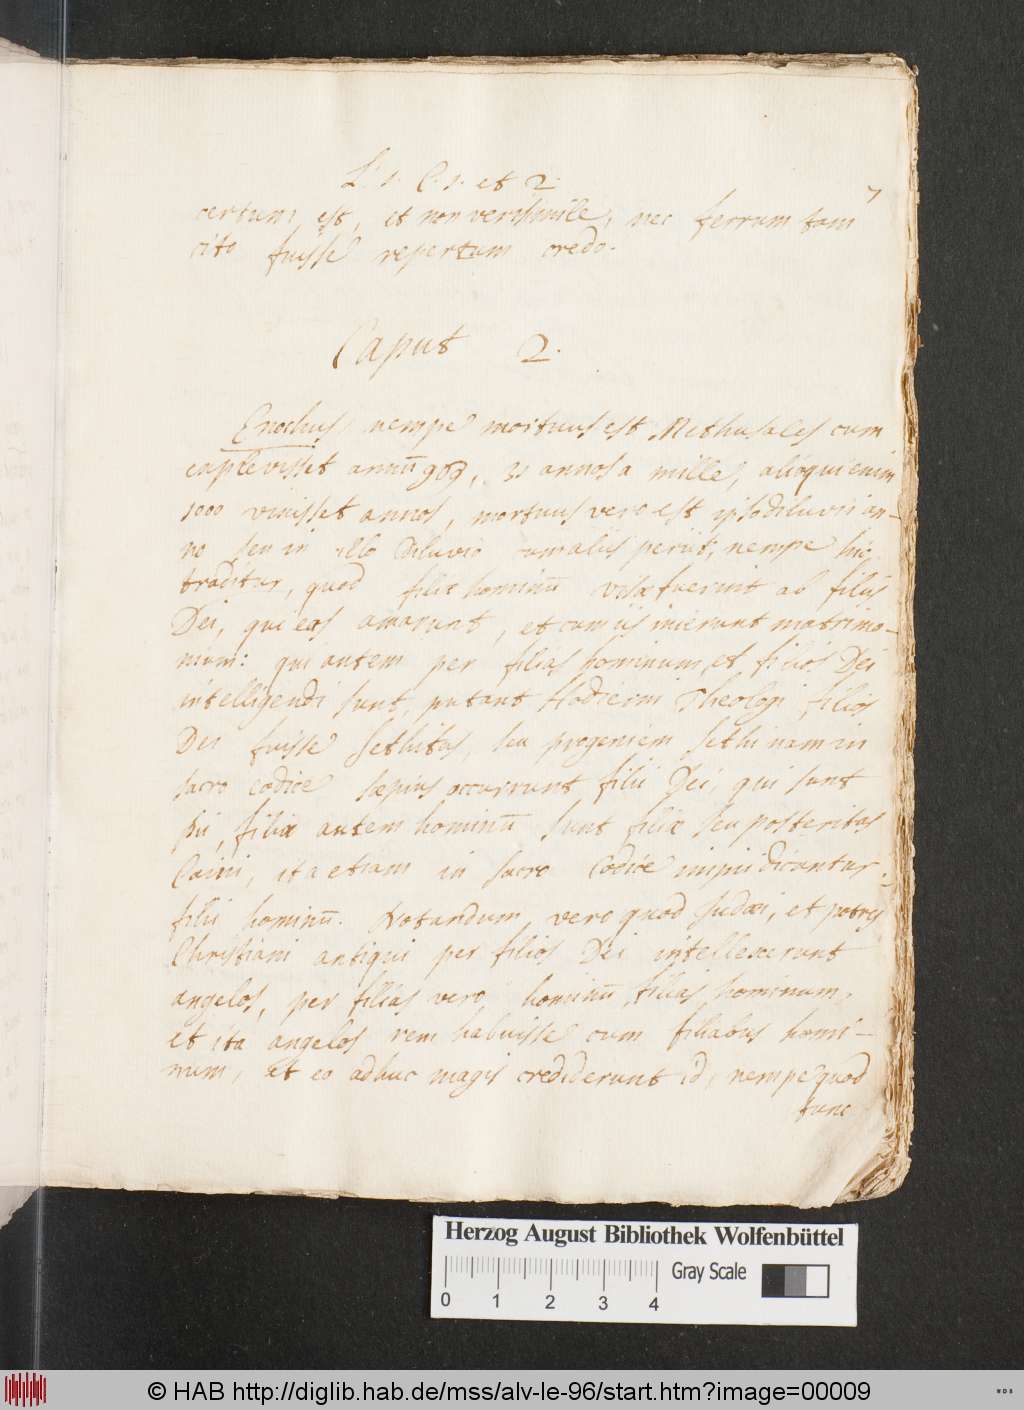 L. 1. C. 1. et 2.
7
certum est, et non verisimile, nec ferrum tam
cito fuisse repertum credo.
Caput 2.
Enochus, nempe mortuus est Methusales cum
explevisset annū 969, 31 annos a mille, alioqui enim
1000 vixisset annos, mortuus vero est ipso diluvii an-
no seu in illo Diluvio cum aliis periit, nempe hic
traditur, quod filiæ hominū visæ fuerint ab filiis
Dei, qui eas amarunt, et cum iis inierunt matrimo-
nium: qui autem per filias hominum, et filios Dei
intelligendi sunt, putant Hodierni Theologi, filios
Dei fuisse Sethitas, seu progeniem Sethi nam in
sacro codice sæpius occurrunt filii Dei, qui sunt
pii, filiæ autem hominū sunt filiæ seu posteritas
Caini, ita etiam in sacro Codice impii dicuntur
filii hominū. Notandum vero quod Judæi, et patres
Christiani antiqui per filios Dei intellexerunt
angelos, per filias vero hominū, filias hominum,
et ita angelos rem habuisse cum filiabus homi-
num, et eo adhuc magis crediderunt id, nempe quod
tunc
Herzog August Bibliothek Wolfenbüttel
0 1 2 3 4
Gray Scale
© HAB http://diglib.hab.de/mss/alv-le-96/start.htm?image=00009